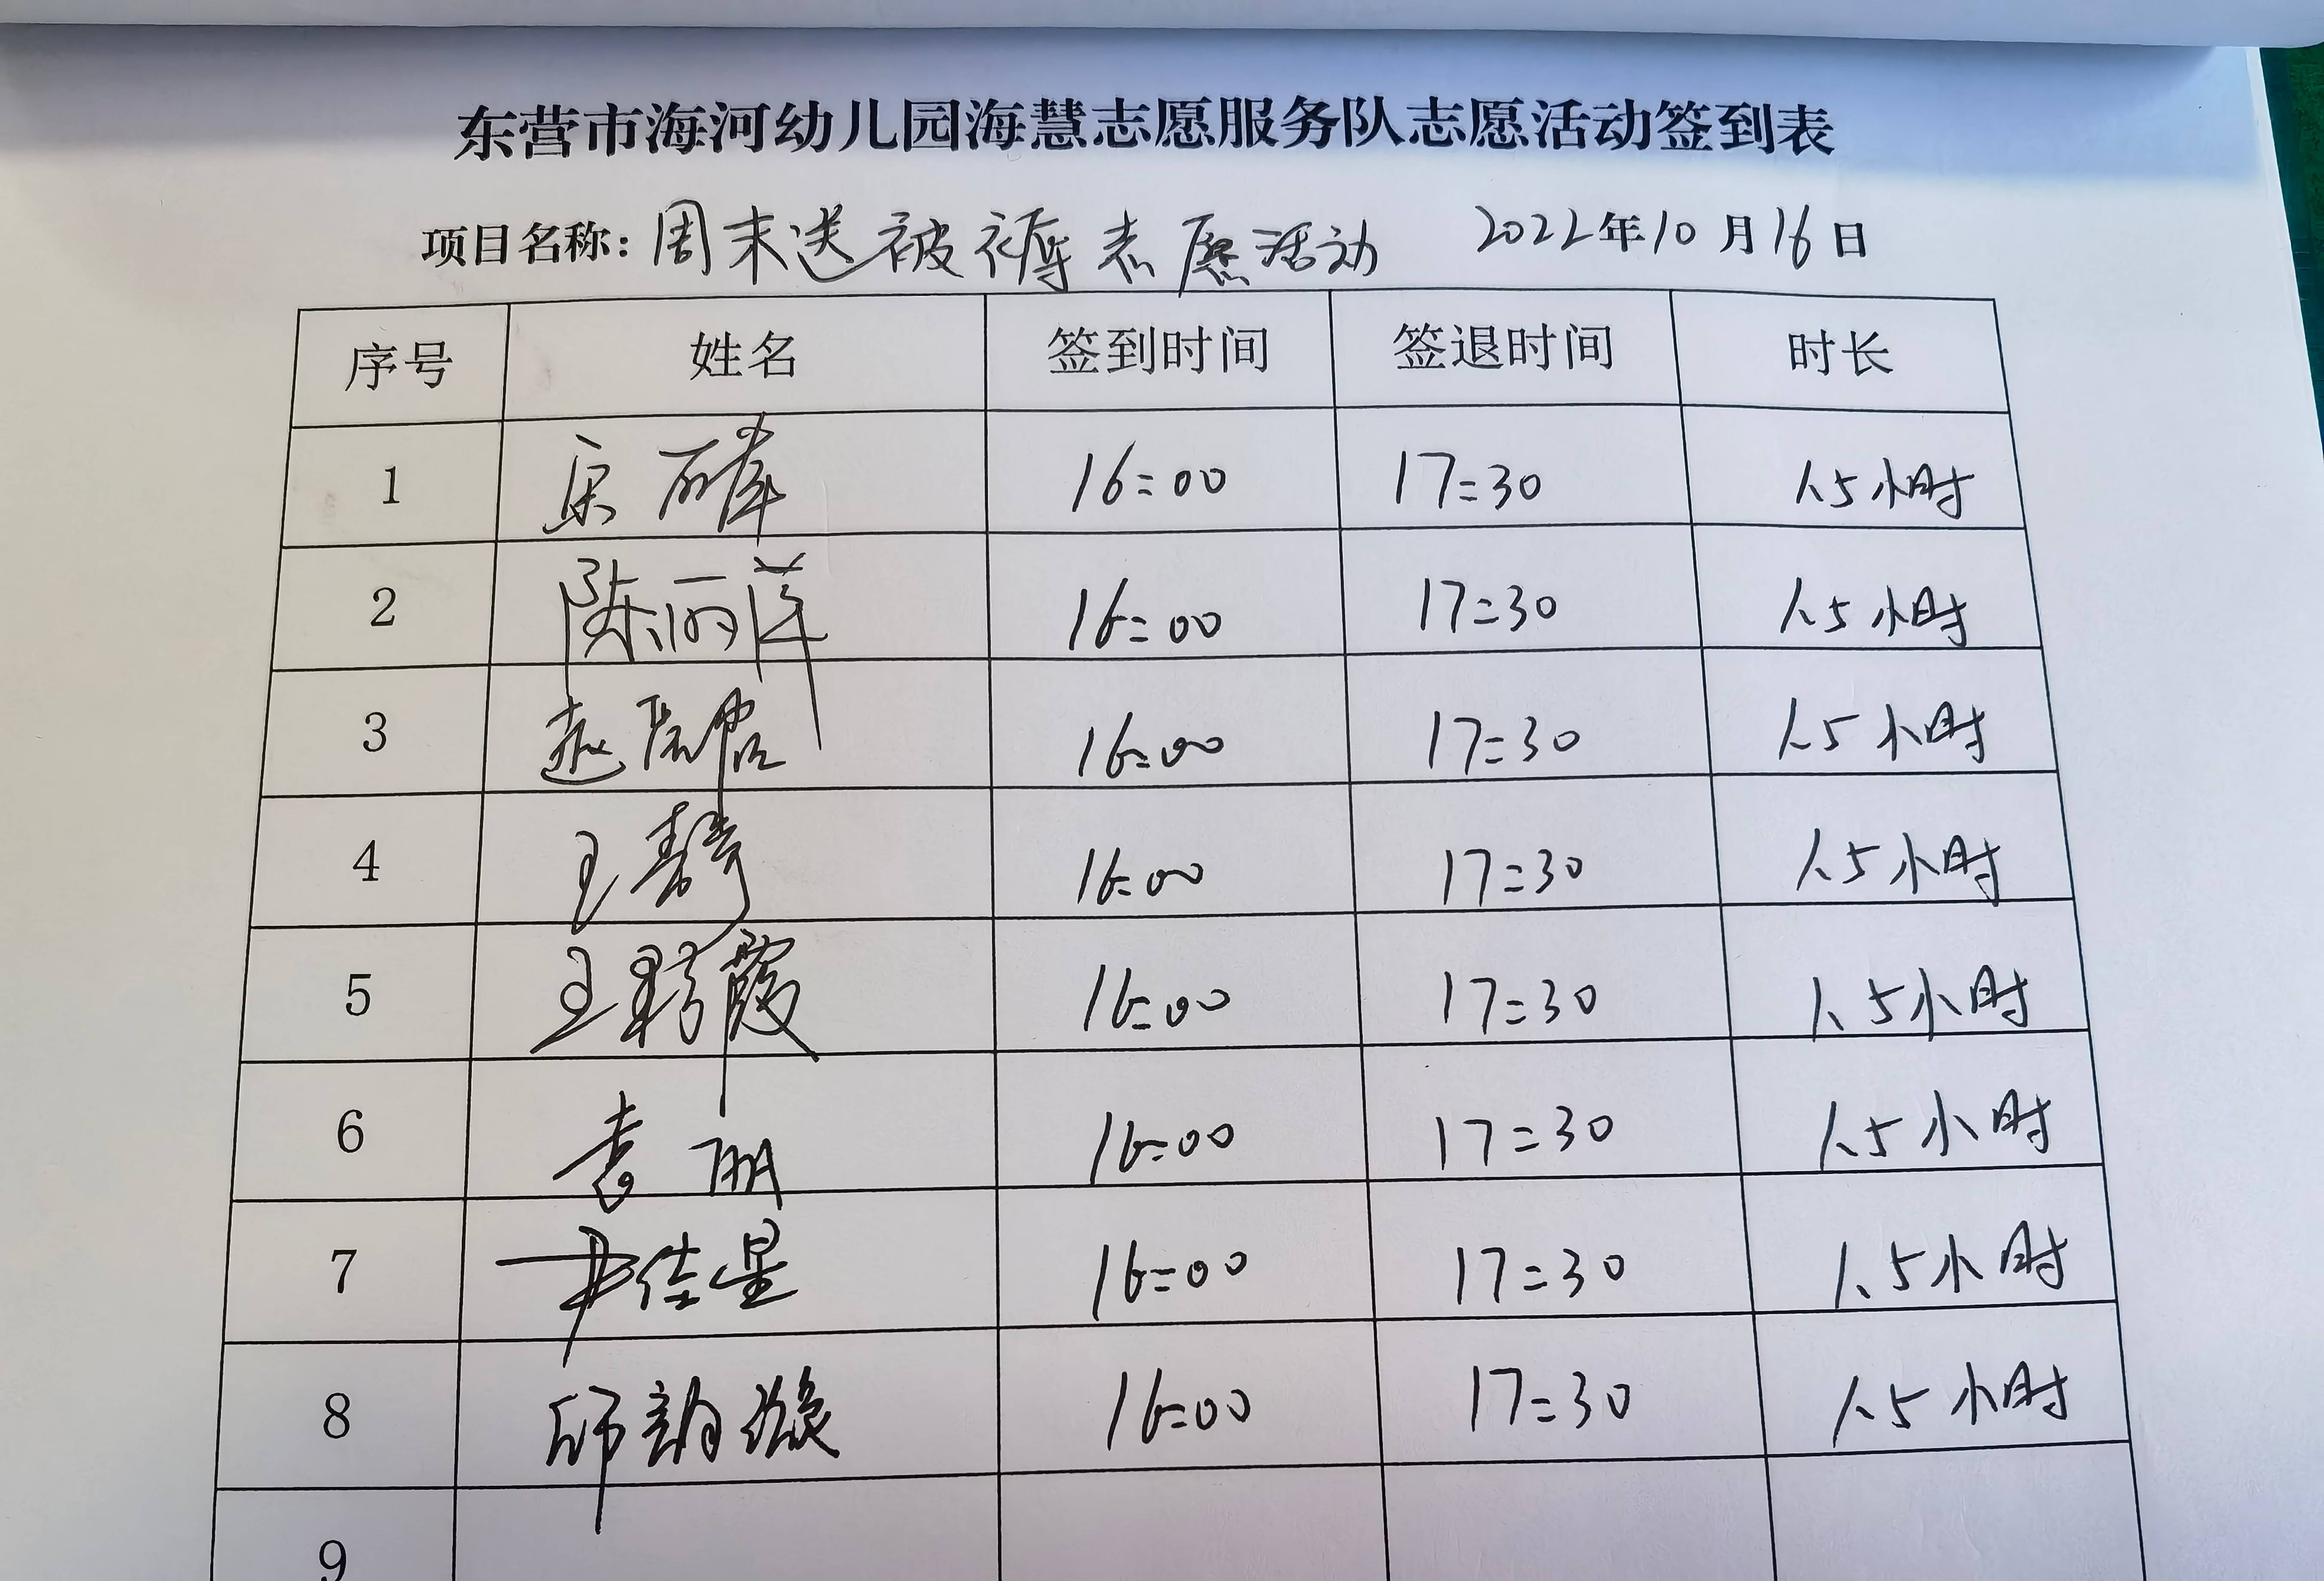 东营市海河幼儿园海慧志愿服务队志愿活动签到表
项目名称：周末送被褥志愿活动 2022年10月16日
序号 姓名 签到时间 签退时间 时长
1 16:00 17:30 1.5小时
2 陈丽萍 16:00 17:30 1.5小时
3 赵 16:00 17:30 1.5小时
4 王 16:00 17:30 1.5小时
5 王 霞 16:00 17:30 1.5小时
6 袁丽 16:00 17:30 1.5小时
7 尹佳星 16:00 17:30 1.5小时
8 邱韵 16:00 17:30 1.5小时
9